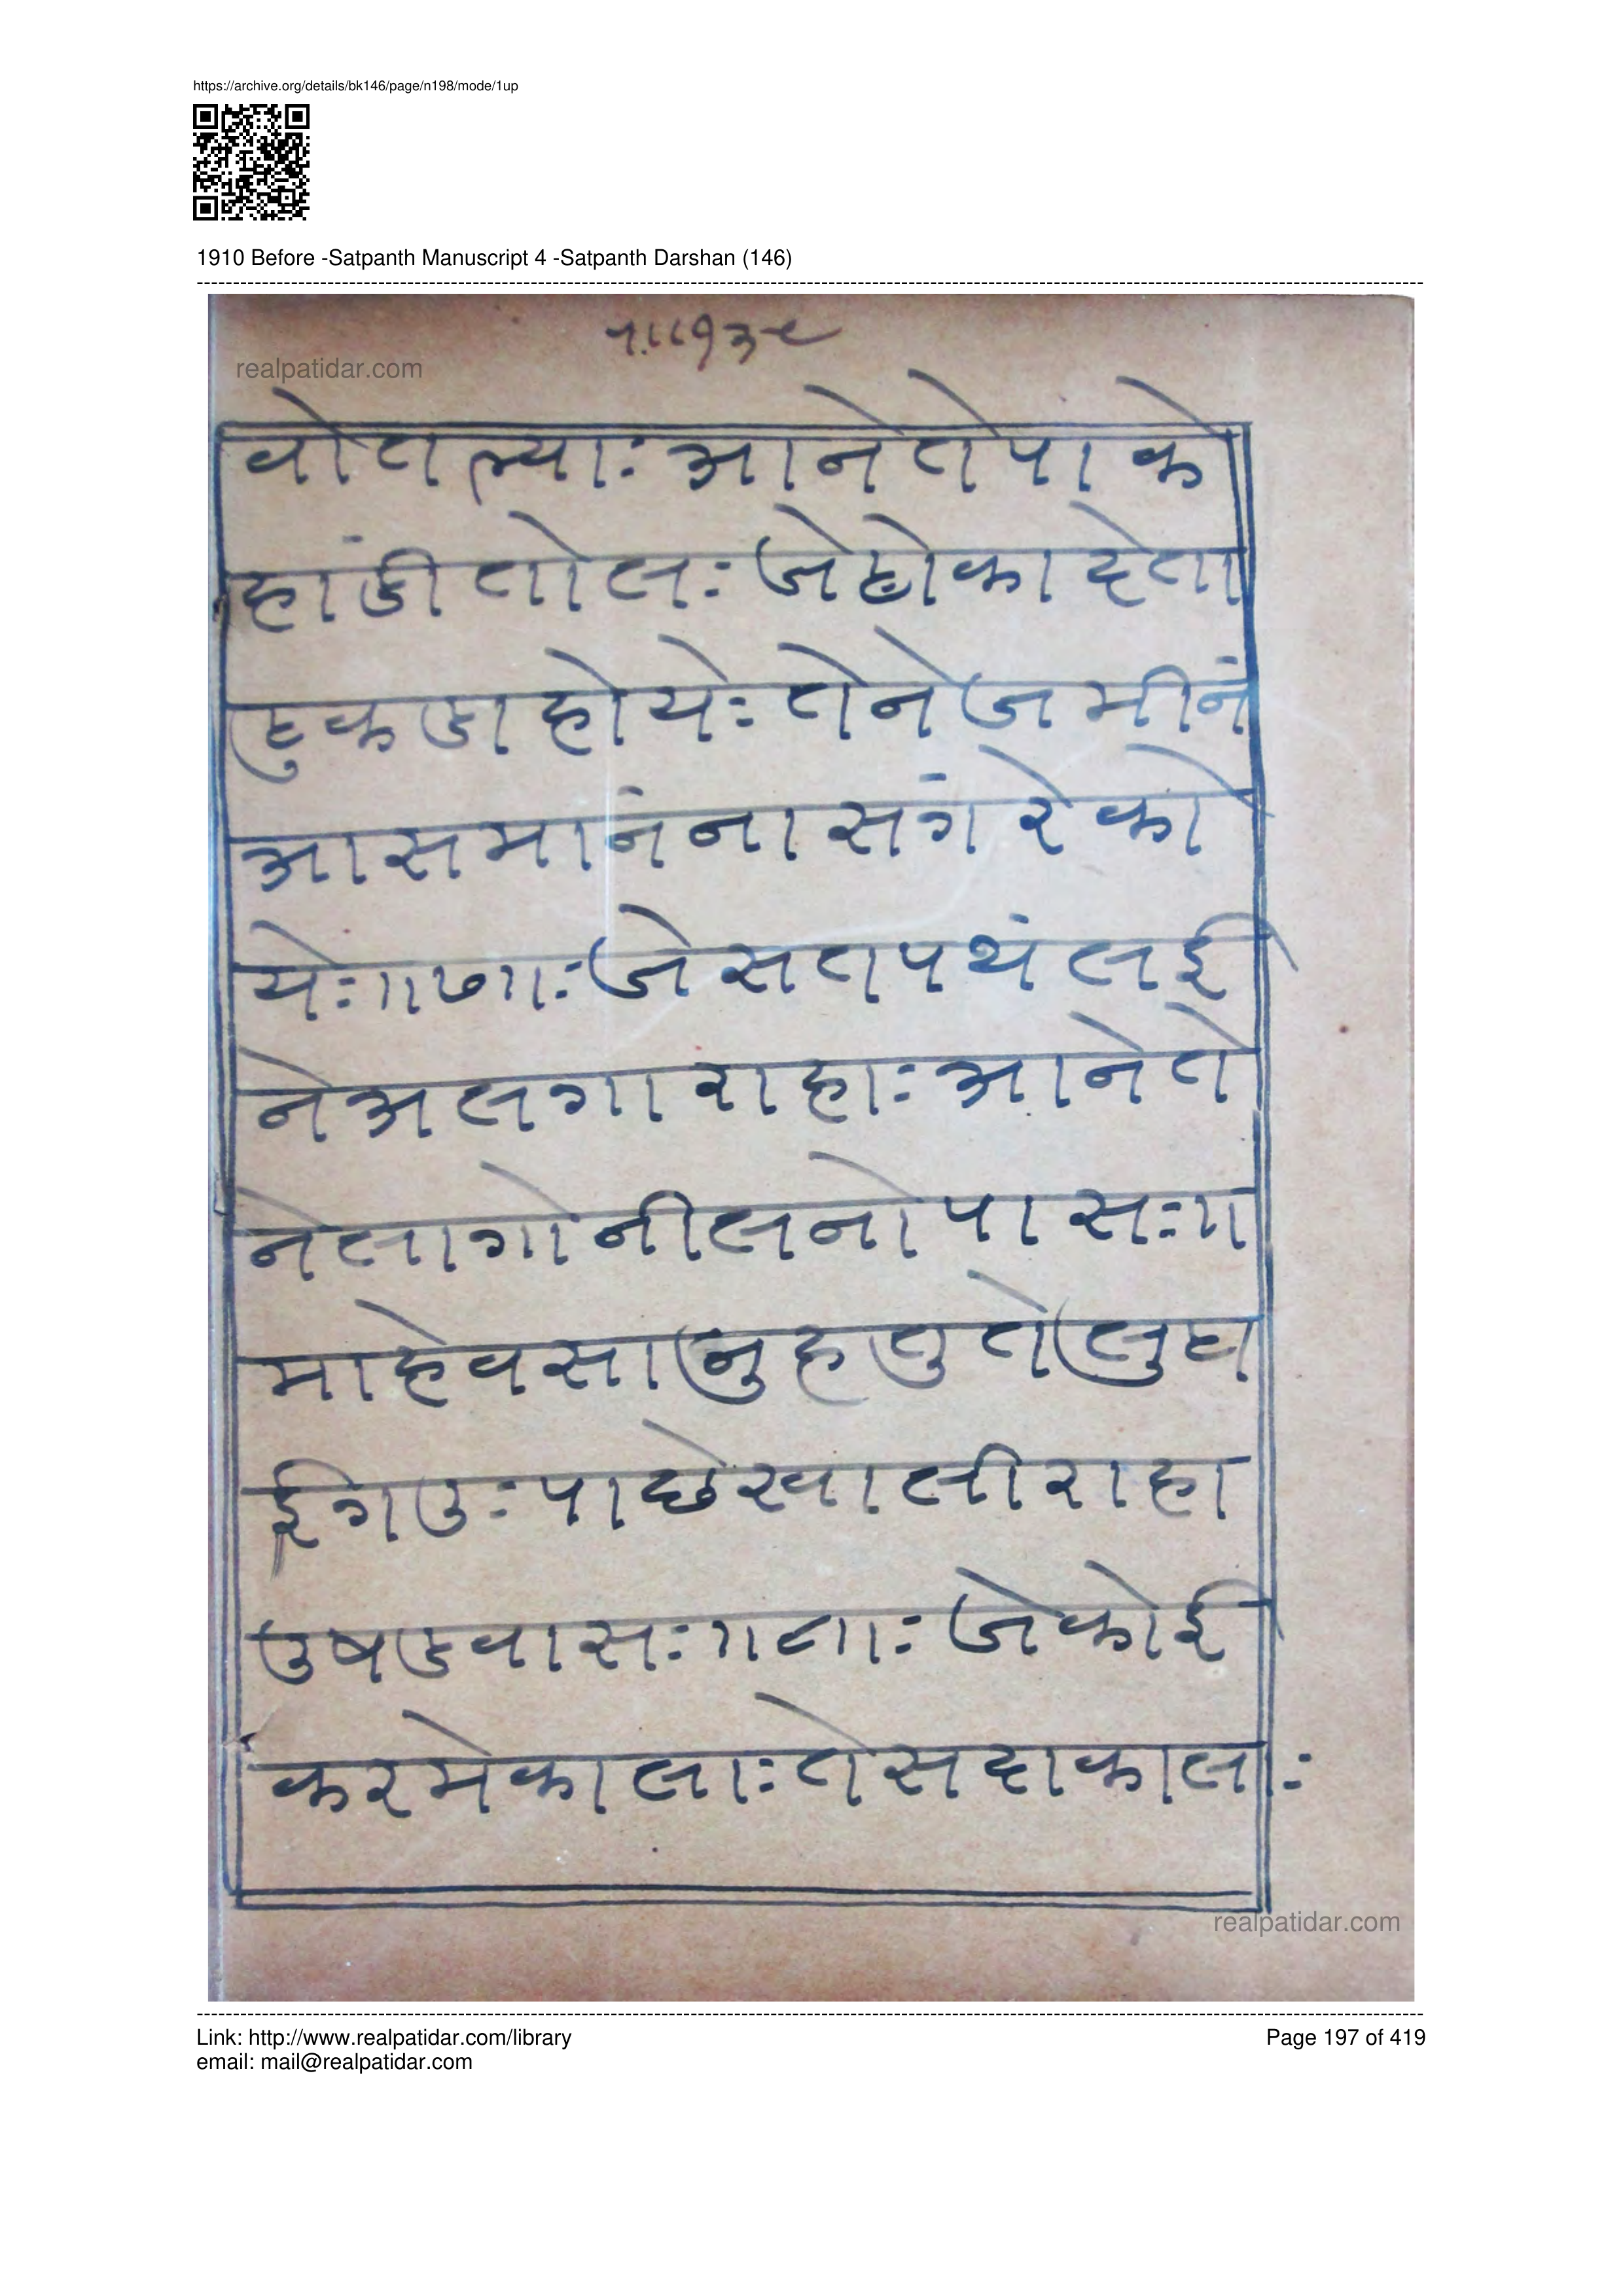 https://archive.org/details/bk146/page/n198/mode/1up
1910 Before -Satpanth Manuscript 4 -Satpanth Darshan (146)
realpatidar.com
वोत ल्याः आनेतेपा के
हांडी तोलः जेहोका देता
टुकडा होयेः तेने जमीनं
आसमानंना सगंरे को
येः॥७॥ः जे सतपथं लई
नेअलगा राहाः आनेते
नेलागोनीलनोपासः॥
माहेवसानुहतुतेलुटा
ईगउः पाछेखालीराहा
उषडवासः॥८॥ः जेकोई
करमेकालाः तेसदाकालाः
realpatidar.com
Link: http://www.realpatidar.com/library
Page 197 of 419
email: mail@realpatidar.com